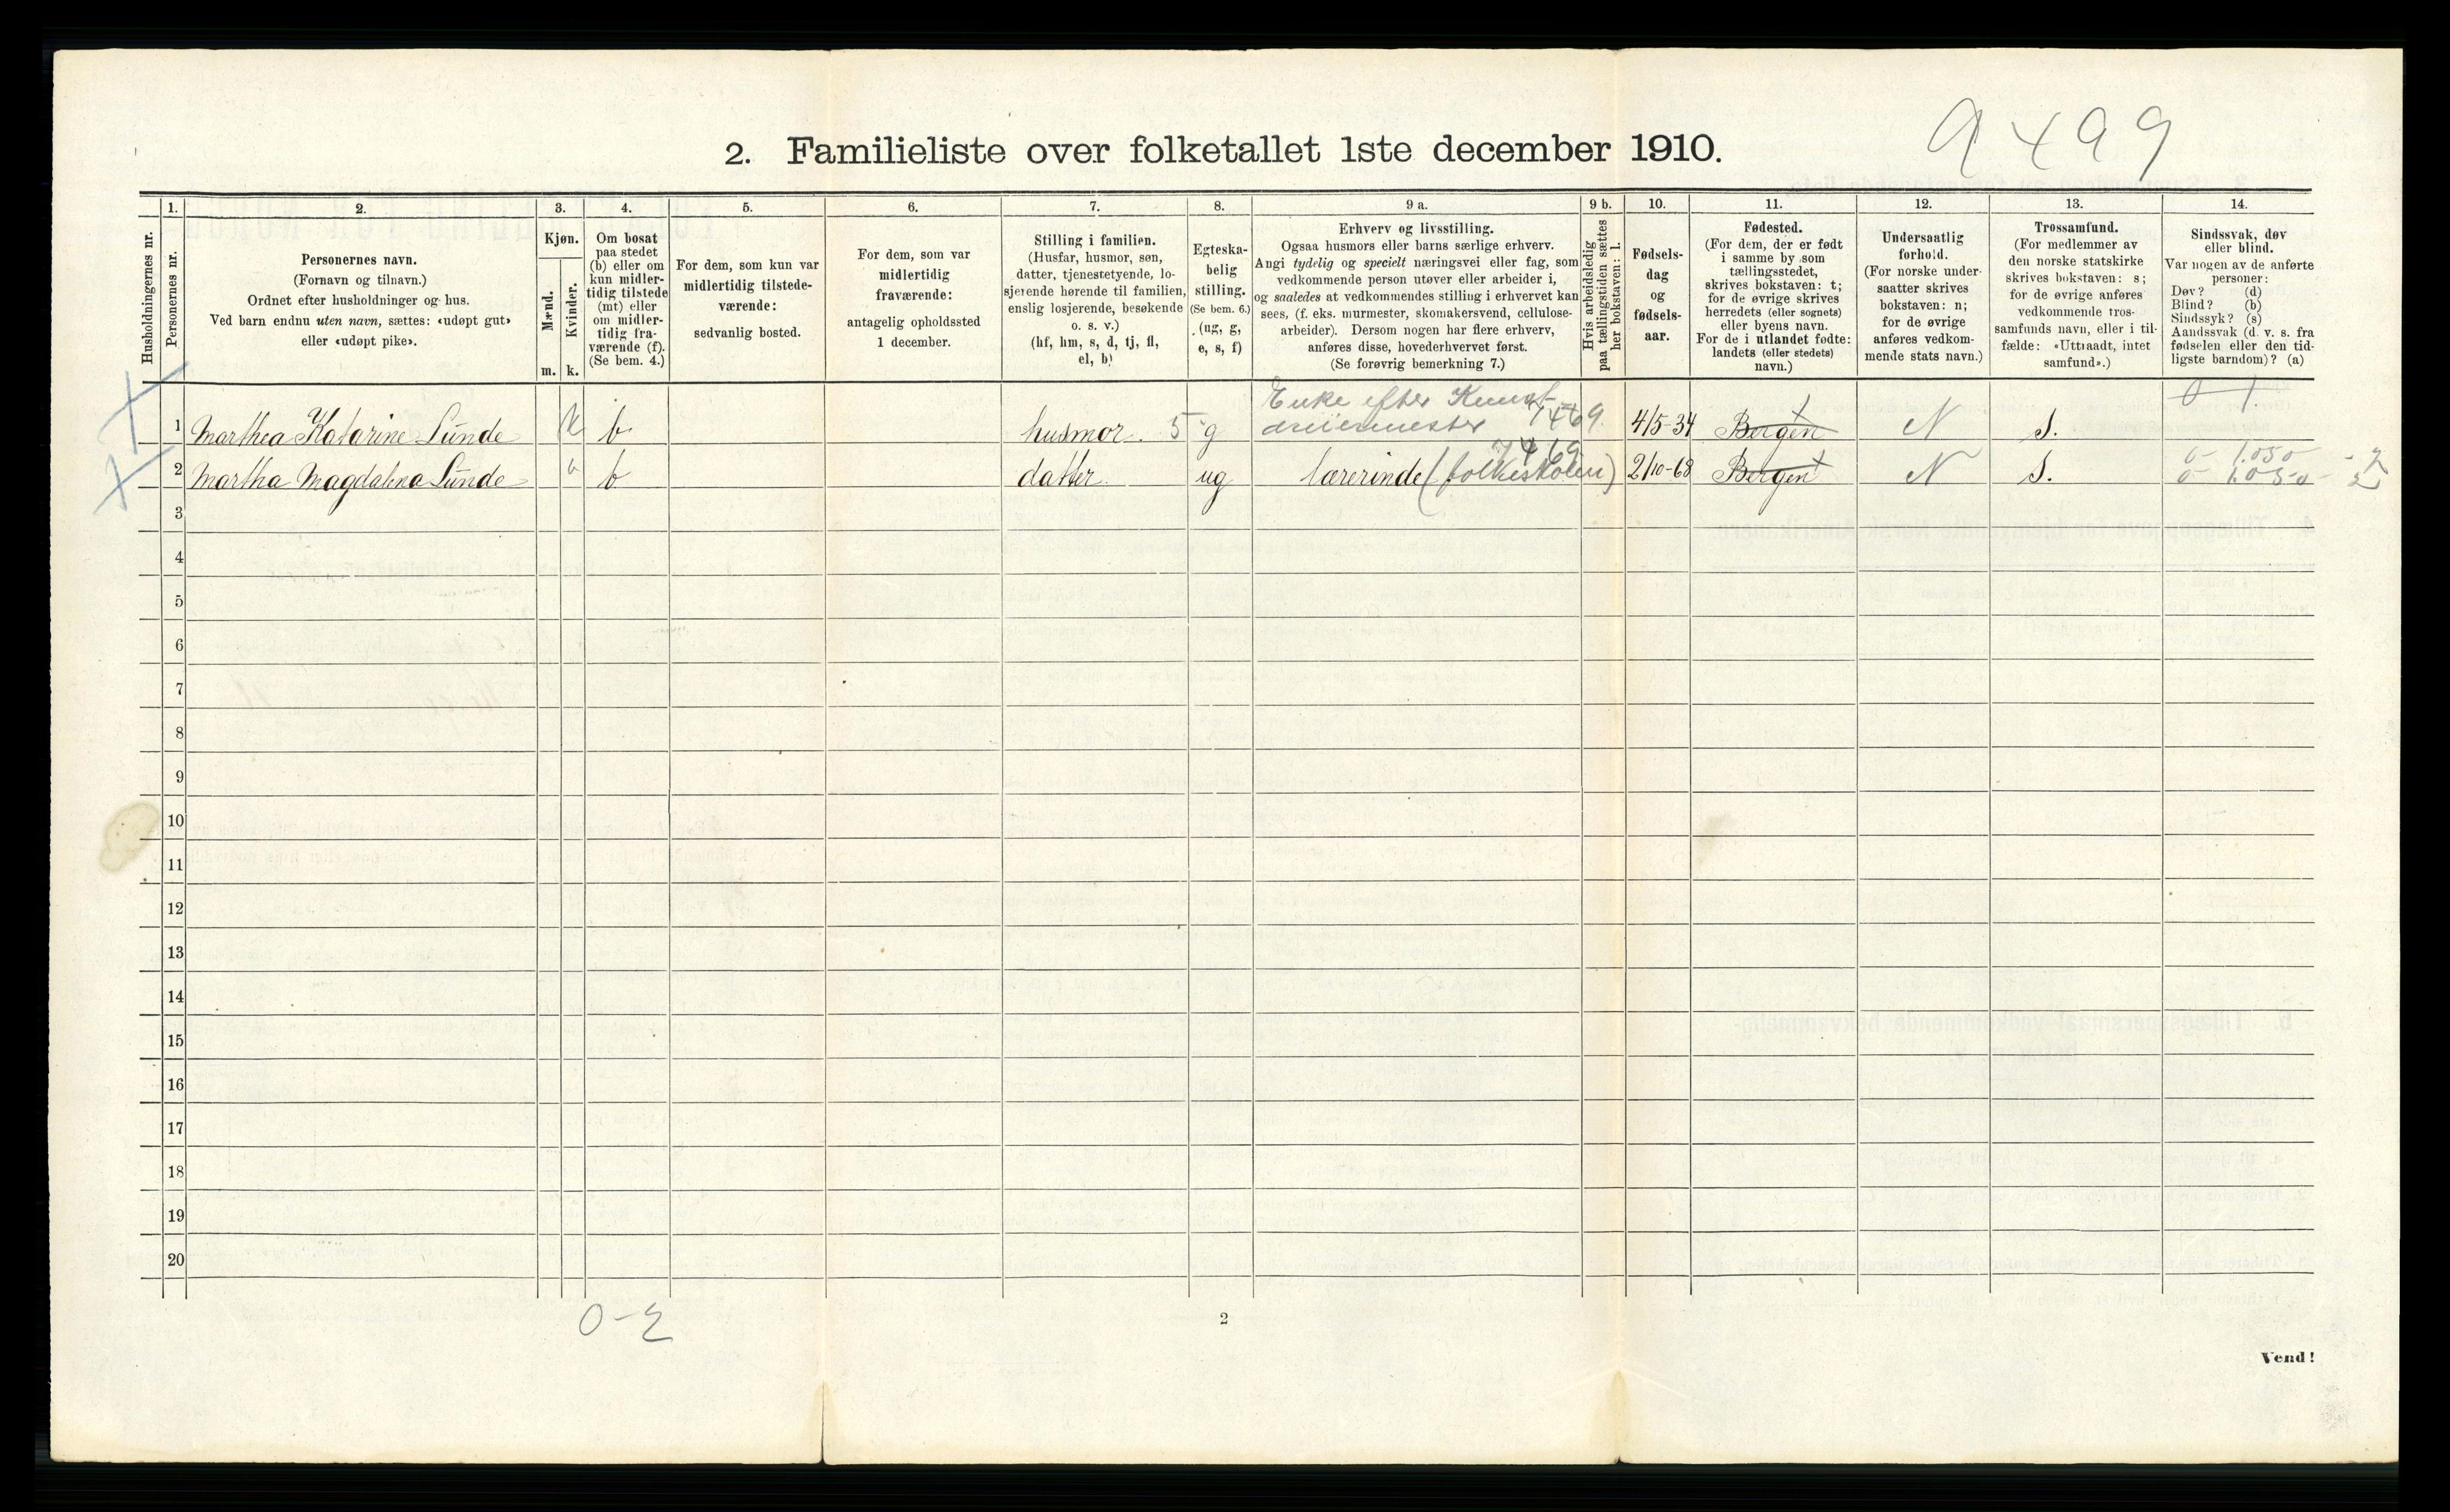 9499
2. Familieliste over folketallet 1ste december 1910.
Husholdningernes nr.
1.
Personernes nr.
2.
Personernes navn.
(Fornavn og tilnavn.)
Ordnet efter husholdninger og hus.
Ved barn endnu uten navn, sættes: «udøpt gut»
eller «udøpt pike».
3.
Kjøn.
Mænd.
Kvinder.
m.
k.
4.
Om bosat
paa stedet
(b) eller om
kun midler-
tidig tilstede
(mt) eller
om midler-
tidig fra-
værende (f).
(Se bem. 4.)
5.
For dem, som kun var
midlertidig tilstede-
værende:
sedvanlig bosted.
6.
For dem, som var
midlertidig
fraværende:
antagelig opholdssted
1 december.
7.
Stilling i familien.
(Husfar, husmor, søn,
datter, tjenestetyende, lo-
sjerende hørende til familien,
enslig losjerende, besøkende
o. s. v.)
(hf, hm, s, d, tj, fl,
el, b)
8.
Egteska-
belig
stilling.
(Se bem. 6.)
(ug, g,
e, s, f)
9 a.
Erhverv og livsstilling.
Ogsaa husmors eller barns særlige erhverv.
Angi tydelig og specielt næringsvei eller fag, som
vedkommende person utøver eller arbeider i,
og saaledes at vedkommendes stilling i erhvervet kan
sees, (f. eks. murmester, skomakersvend, cellulose-
arbeider). Dersom nogen har flere erhverv,
anføres disse, hovederhvervet først.
(Se forøvrig bemerkning 7.)
9 b.
Hvis arbeidsledig
paa tællingstiden sættes
her bokstaven: l.
10.
Fødsels-
dag
og
fødsels-
aar.
11.
Fødested.
(For dem, der er født
i samme by som
tællingsstedet,
skrives bokstaven: t;
for de øvrige skrives
herredets (eller sognets)
eller byens navn.
For de i utlandet fødte:
landets (eller stedets)
navn.)
12.
Undersaatlig
forhold.
(For norske under-
saatter skrives
bokstaven: n;
for de øvrige
anføres vedkom-
mende stats navn.)
13.
Trossamfund.
(For medlemmer av
den norske statskirke
skrives bokstaven: s;
for de øvrige anføres
vedkommende tros-
samfunds navn, eller i til-
fælde: «Uttraadt, intet
samfund».)
14.
Sindssvak, døv
eller blind.
Var nogen av de anførte
personer:
Døv? (d)
Blind? (b)
Sindssyk? (s)
Aandssvak (d. v. s. fra
fødselen eller den tid-
ligste barndom)? (a)
Enke efter Kunst-
1 Marthea Katarine Lunde k b husmor. 5 g dreiermester 7469. 4/5-34 Bergen t N S. 0 1.
2 Martha Magdalena Lunde k b datter. ug lærerinde (folkeskolen) 7469 2/10-68 Bergen t N S. 0 1.050 - 2
0 1.050 - 2
3
4
5
6
7
8
9
10
11
12
13
14
15
16
17
18
19
20
0-2
2
Vend!